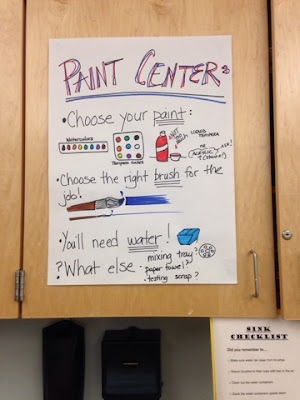 PAINT CENTER
•Choose your paint:
Watercolors
Tempera Cakes
NOT too much
LIQUID TEMPERA
or
ACRYLIC? ASK!
•Choose the right brush for the
job!
•You'll need water!
?What else: mixing tray?
•paper towel?
•testing scrap?
SINK
CHECKLIST
Did you remember to...